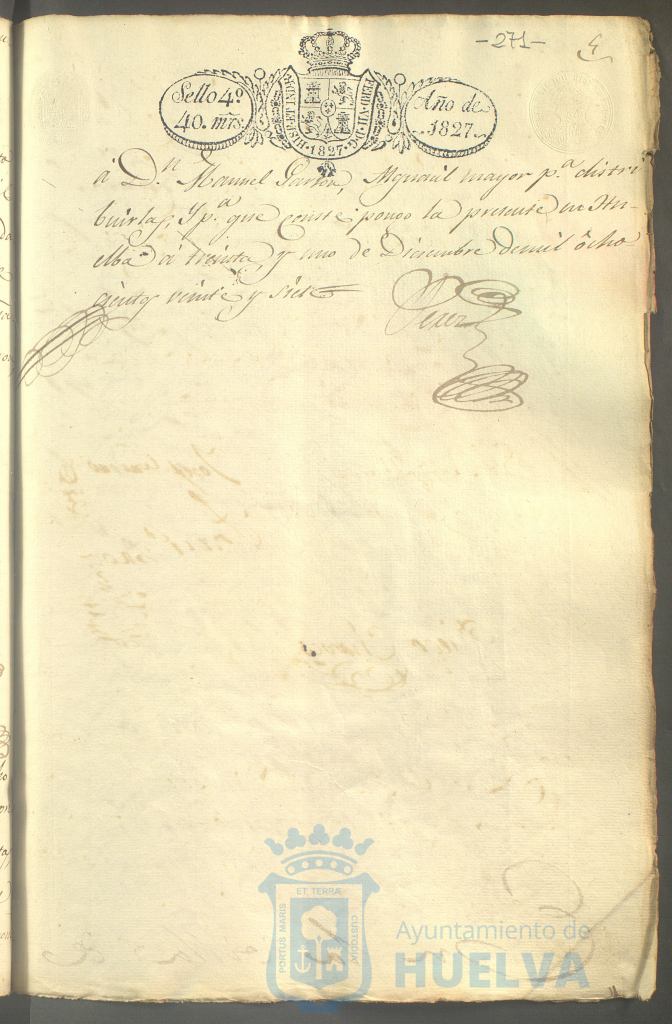 -271-
Sello 4º
40. mrs.
HISP. ET IND. R
FERD. VII. D. G.
1827
Año de
1827.
á D.n Manuel Garzon, Alguacil mayor p.a distri
buirlas, y p.a que conste pongo la presente en Hu-
elba á treinta, y uno de Diciembre de mil ôcho
cientos veinte y siete
Perez
ET TERRÆ
PORTUS MARIS
CUSTODIA
Ayuntamiento de
HUELVA